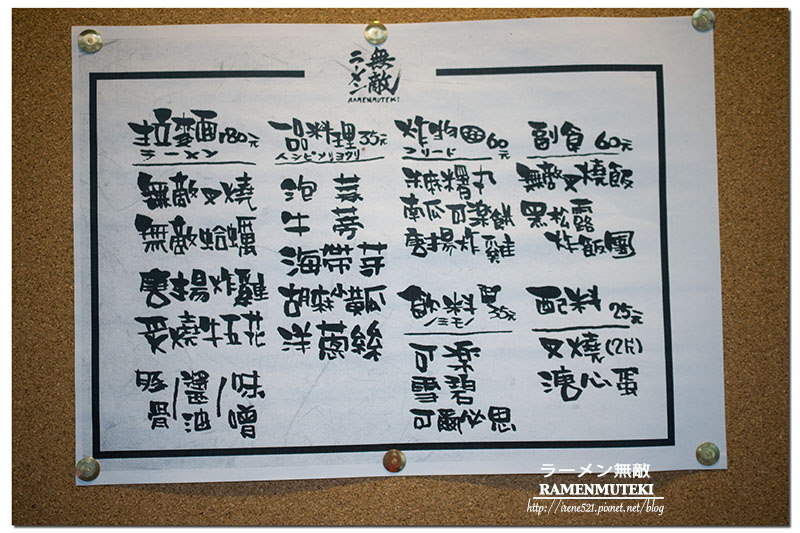 無敵
ラーメン
RAMENMUTEKI
拉麵 180元
ラーメン
無敵叉燒
無敵蛤蠣
唐揚炸雞
炙燒牛五花
豚骨/醬油/味噌
一品料理 35元
泡菜
牛蒡
海帶芽
胡麻小黃瓜
洋蔥絲
炸物 60元
フリード
糯米腸丸
南瓜可樂餅
唐揚炸雞
飲料 35元
ノミモノ
可樂
雪碧
可爾必思
副食 60元
無敵叉燒飯
黑松露
炸飯團
配料 25元
叉燒(2片)
溏心蛋
ラーメン無敵
RAMENMUTEKI
http://irene521.pixnet.net/blog